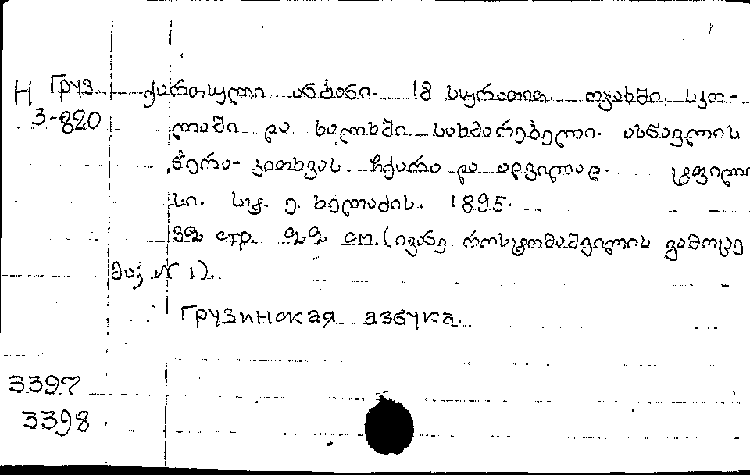 Н Груз ქართული ანბანი. 18 სურათით ოჯახში, სკო-
3-820 ლაში და ხალხში სახმარებელი. ასწავლის
წერა-კითხვას ჩქარა და ადვილად. ტფილი
სი. სტ. ე. ხელაძის. 1895.
32 стр. см. (ივანე როსტომაშვილის გამოცე
მა№ 1).
Грузинская азбука.
3397
3398